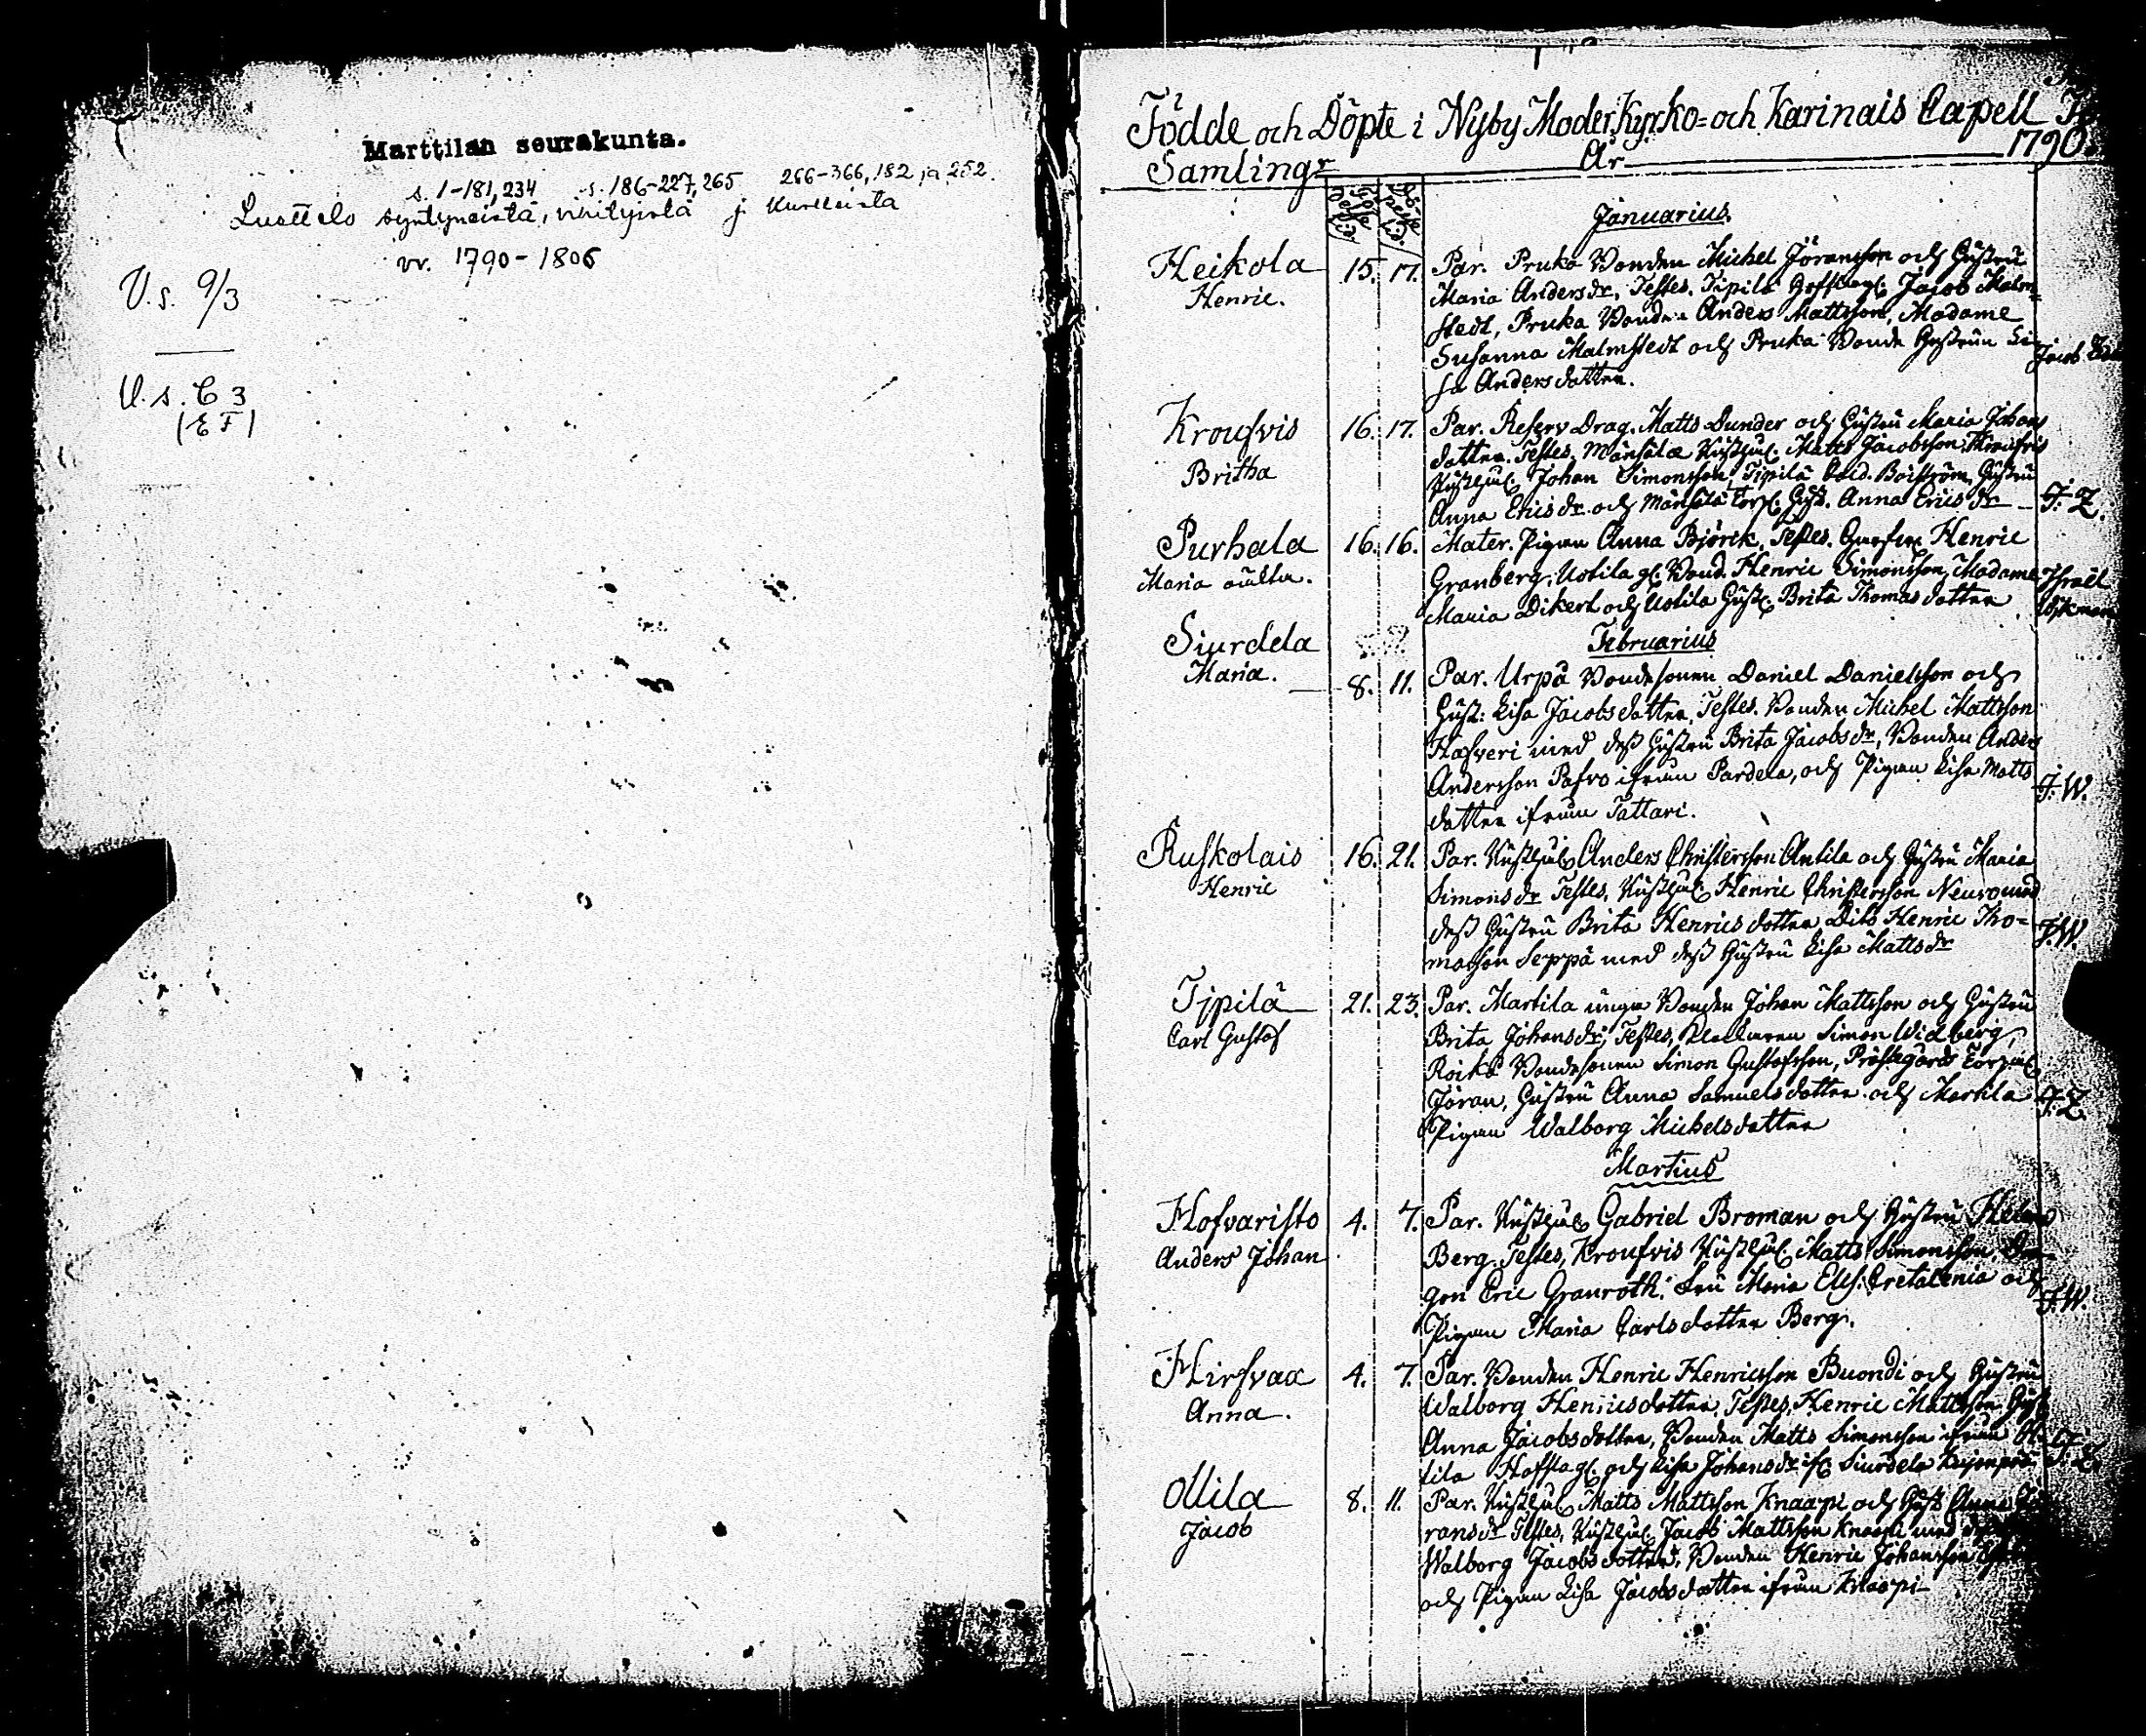 Marttilan seurakunta.
s. 1-181, 234 s. 186-227, 265 266-366, 182 ja 252.
Luettelo syntyneistä, vihityistä ja kuolleista
vv. 1790-1806
V.s. 9/3
U.s. C 3
(EF)
Födde och Döpte i Nyby Moder Kyrko- och Karinais Capell
Samlingr År 1790.
Januarius.
Heikola 15. 17. Par. Pruka Bonden Michel Jöransson och Hustru
Henric. Maria Andersdr. Testes. Tipilä Jacob Malm-
stedt, Pruka Bonden Anders Mattsson, Madame
Susanna Malmstedt och Pruka Bonde Hustrun Li-
sa Andersdotter. Jacob
Kroufvis 16. 17. Par. Reserv Drag. Matts Dunder och Hustru Maria Johans
Britha dotter. Testes. Mänsälä Rusth. Matts Jacobsson, Kroufvis
Rusth. Johan Simonsson, Tipilä Hustru
Anna Ericsdr. och Mänsälä Torp. Hust. Anna Ericsdr J.Z.
Purhala 16. 16. Mater. Pigan Anna Björck. Testes. Henric
Maria oäkta. Granberg, Uotila Bond. Henric Simonsson, Madame Israël
Maria Dikert och Uotila Hust. Brita Thomasdotter Wikman
Siurdela Februarius
Maria. 8. 11. Par. Urpå Bondesonen Daniel Danielsson och
Hust: Lisa Jacobsdotter, Testes. Bonden Michel Mattsson
Hafveri med dess Hustru Brita Jacobsdr, Bonden Anders
Andersson Pafvo ifrån Pardela, och Pigan Lisa Matts
dotter ifrån Tattari. J.W.
Ruskolais 16. 21. Par. Rusth. Anders Christersson Antila och Hustru Maria
Henric Simonsdr Testes, Rusth. Henric Christersson Neuvo med
dess Hustru Brita Henricsdotter Dito Henric Tho-
masson Seppä med dess Hustru Lisa Mattsdr J.W.
Tjpilä 21. 23. Par. Martila unga Bonden Johan Mattsson och Hustru
Carl Gustaf Brita Johansdr, Testes, Klockaren Simon Widberg,
Roika Bondesonen Simon Gustafsson, Prästgårds Torp.
Jöran, Hustru Anna Samuelsdotter och Martila J.Z.
Pigan Walborg Michelsdotter
Martius
Hofvaristo 4. 7. Par. Rusth. Gabriel Broman och Hustru Helena
Anders Johan Berg. Testes, Kroufvis Rusth. Matts Simonsson,
gon Eric Granroth, Fru Maria Elis. Cretalenia och
Pigan Maria Carlsdotter Berg. J.W.
Hirfvax 4. 7. Par. Bonden Henric Henricsson Buondi och Hustru
Anna. Walborg Henricsdotter, Testes, Henric Mattsson
Anna Jacobsdotter, Bonden Matts Simonsson ifrån
tila och Lisa Johansdr Siurdela J.Z.
Ollila 8. 11. Par. Rusth. Matts Mattsson Knaapi och Hust. Anna Jö
Jacob ransdr Testes, Rusth. Jacob Mattsson Knaapi med
Walborg Jacobsdotter, Bonden Henric Johansson
och Pigan Lisa Jacobsdotter ifrån Knaapi